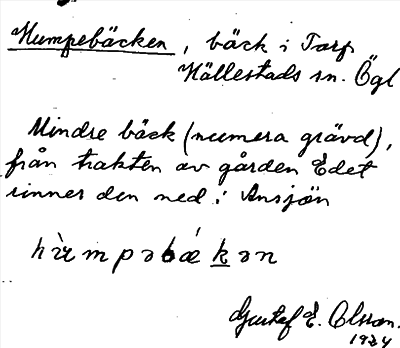 Humpebäcken, bäck i Torp
Hällestads sn. Ögl
Mindre bäck (numera grävd),
från trakten av gården Edet
rinner den ned i Ansjön
Gustaf E. Olsson.
1934